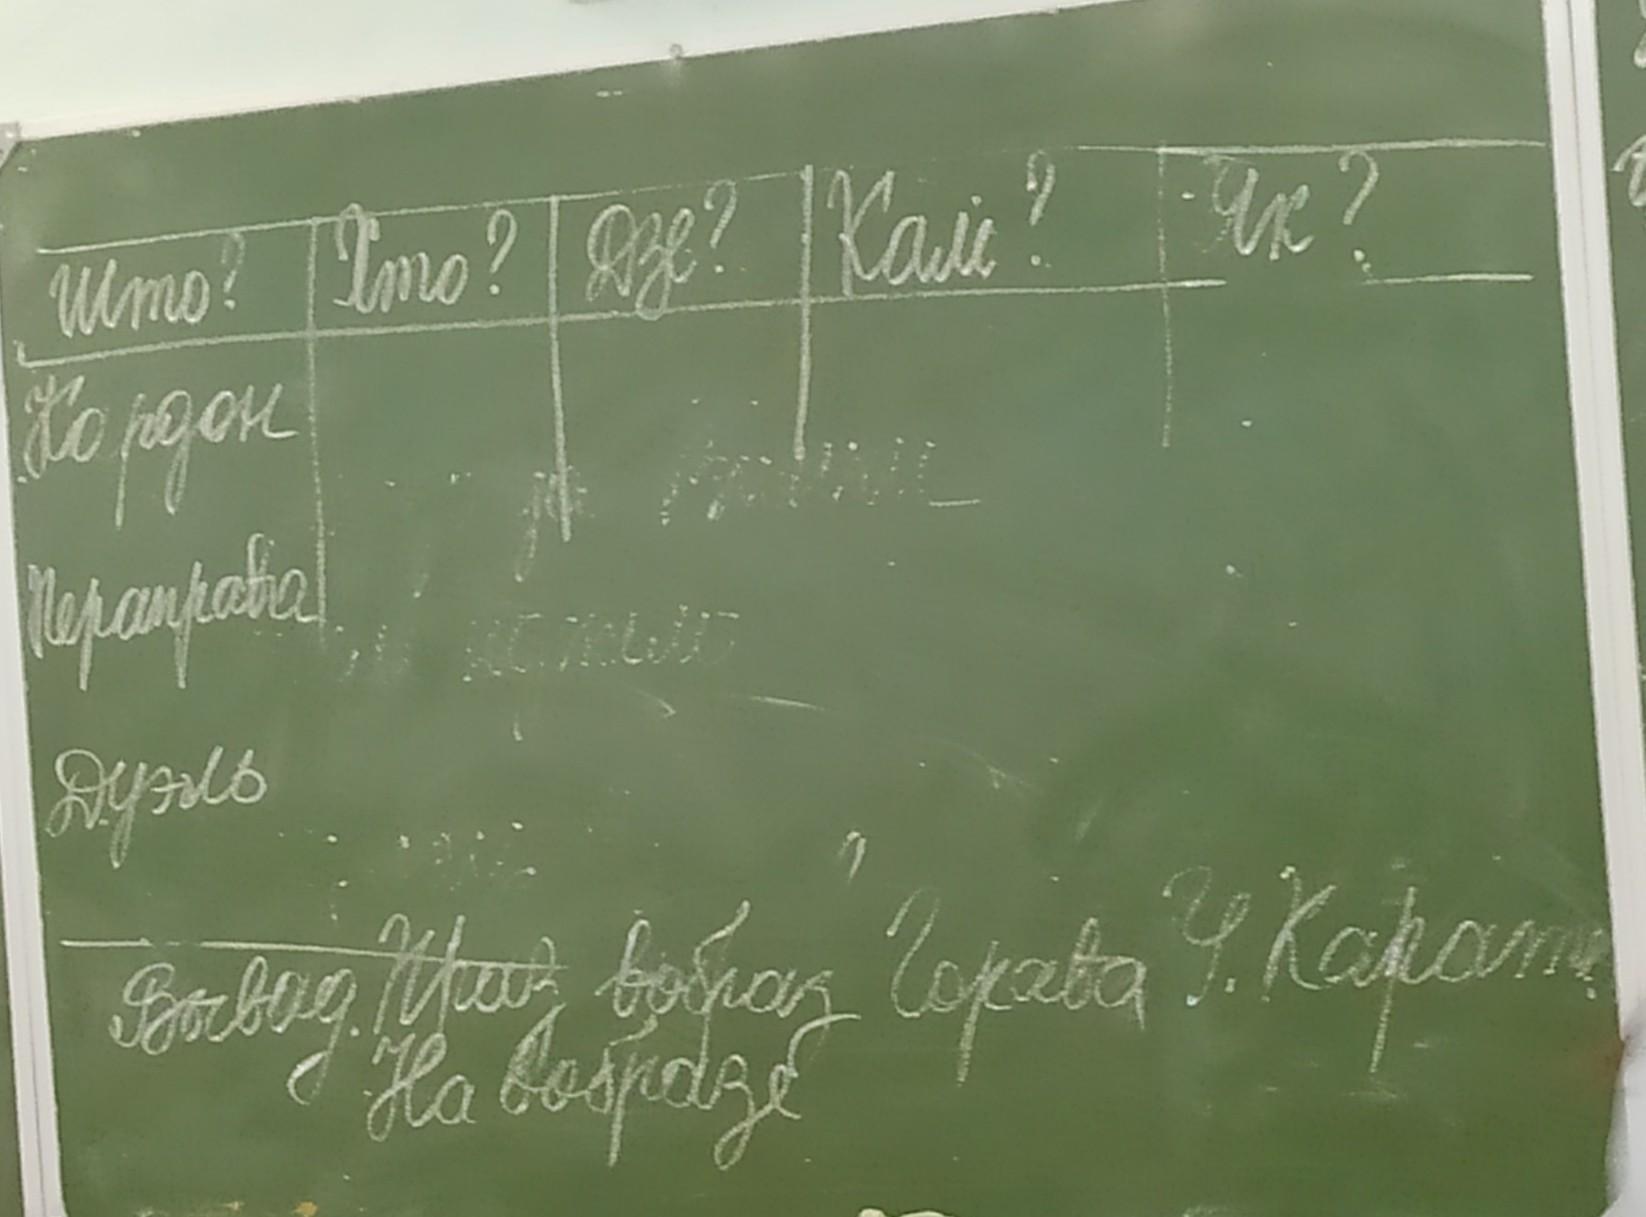 Што? Хто? Дзе? Калі? Як?
Кардон
Пераправа
Дуэль
Вывад. Праз вобраз Горава У. Карат
На вобразе